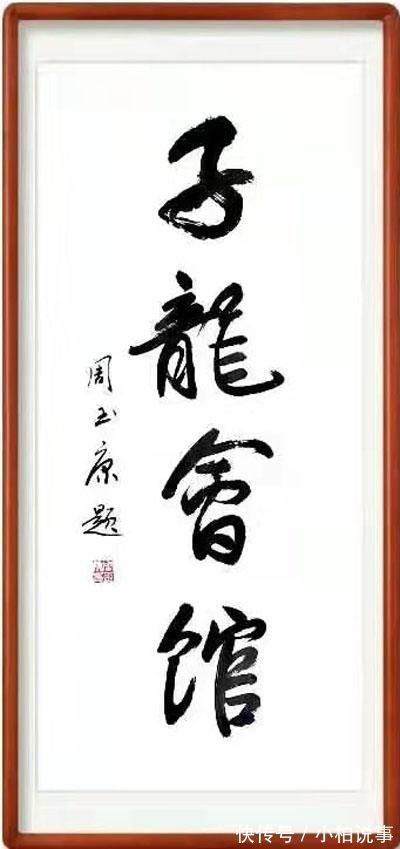 子龍會馆
周玉康題
快传号／小柏说事